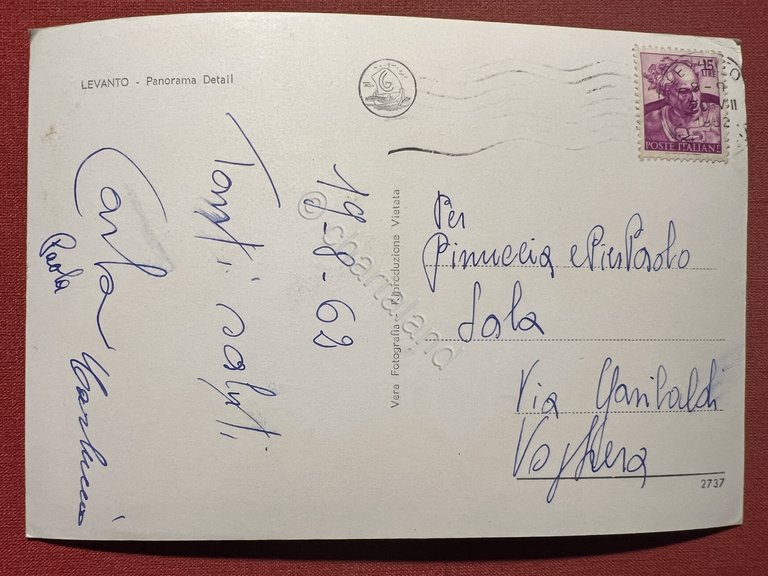 LEVANTO - Panorama Detail
19-8-62
Tanti saluti
Carla
Paola
Vera Fotografia - Riproduzione Vietata
15
LIRE
POSTE ITALIANE
Per
Pinuccia e PierPaolo
Sala
Via Garibaldi
Voghera
2737
© chartaland